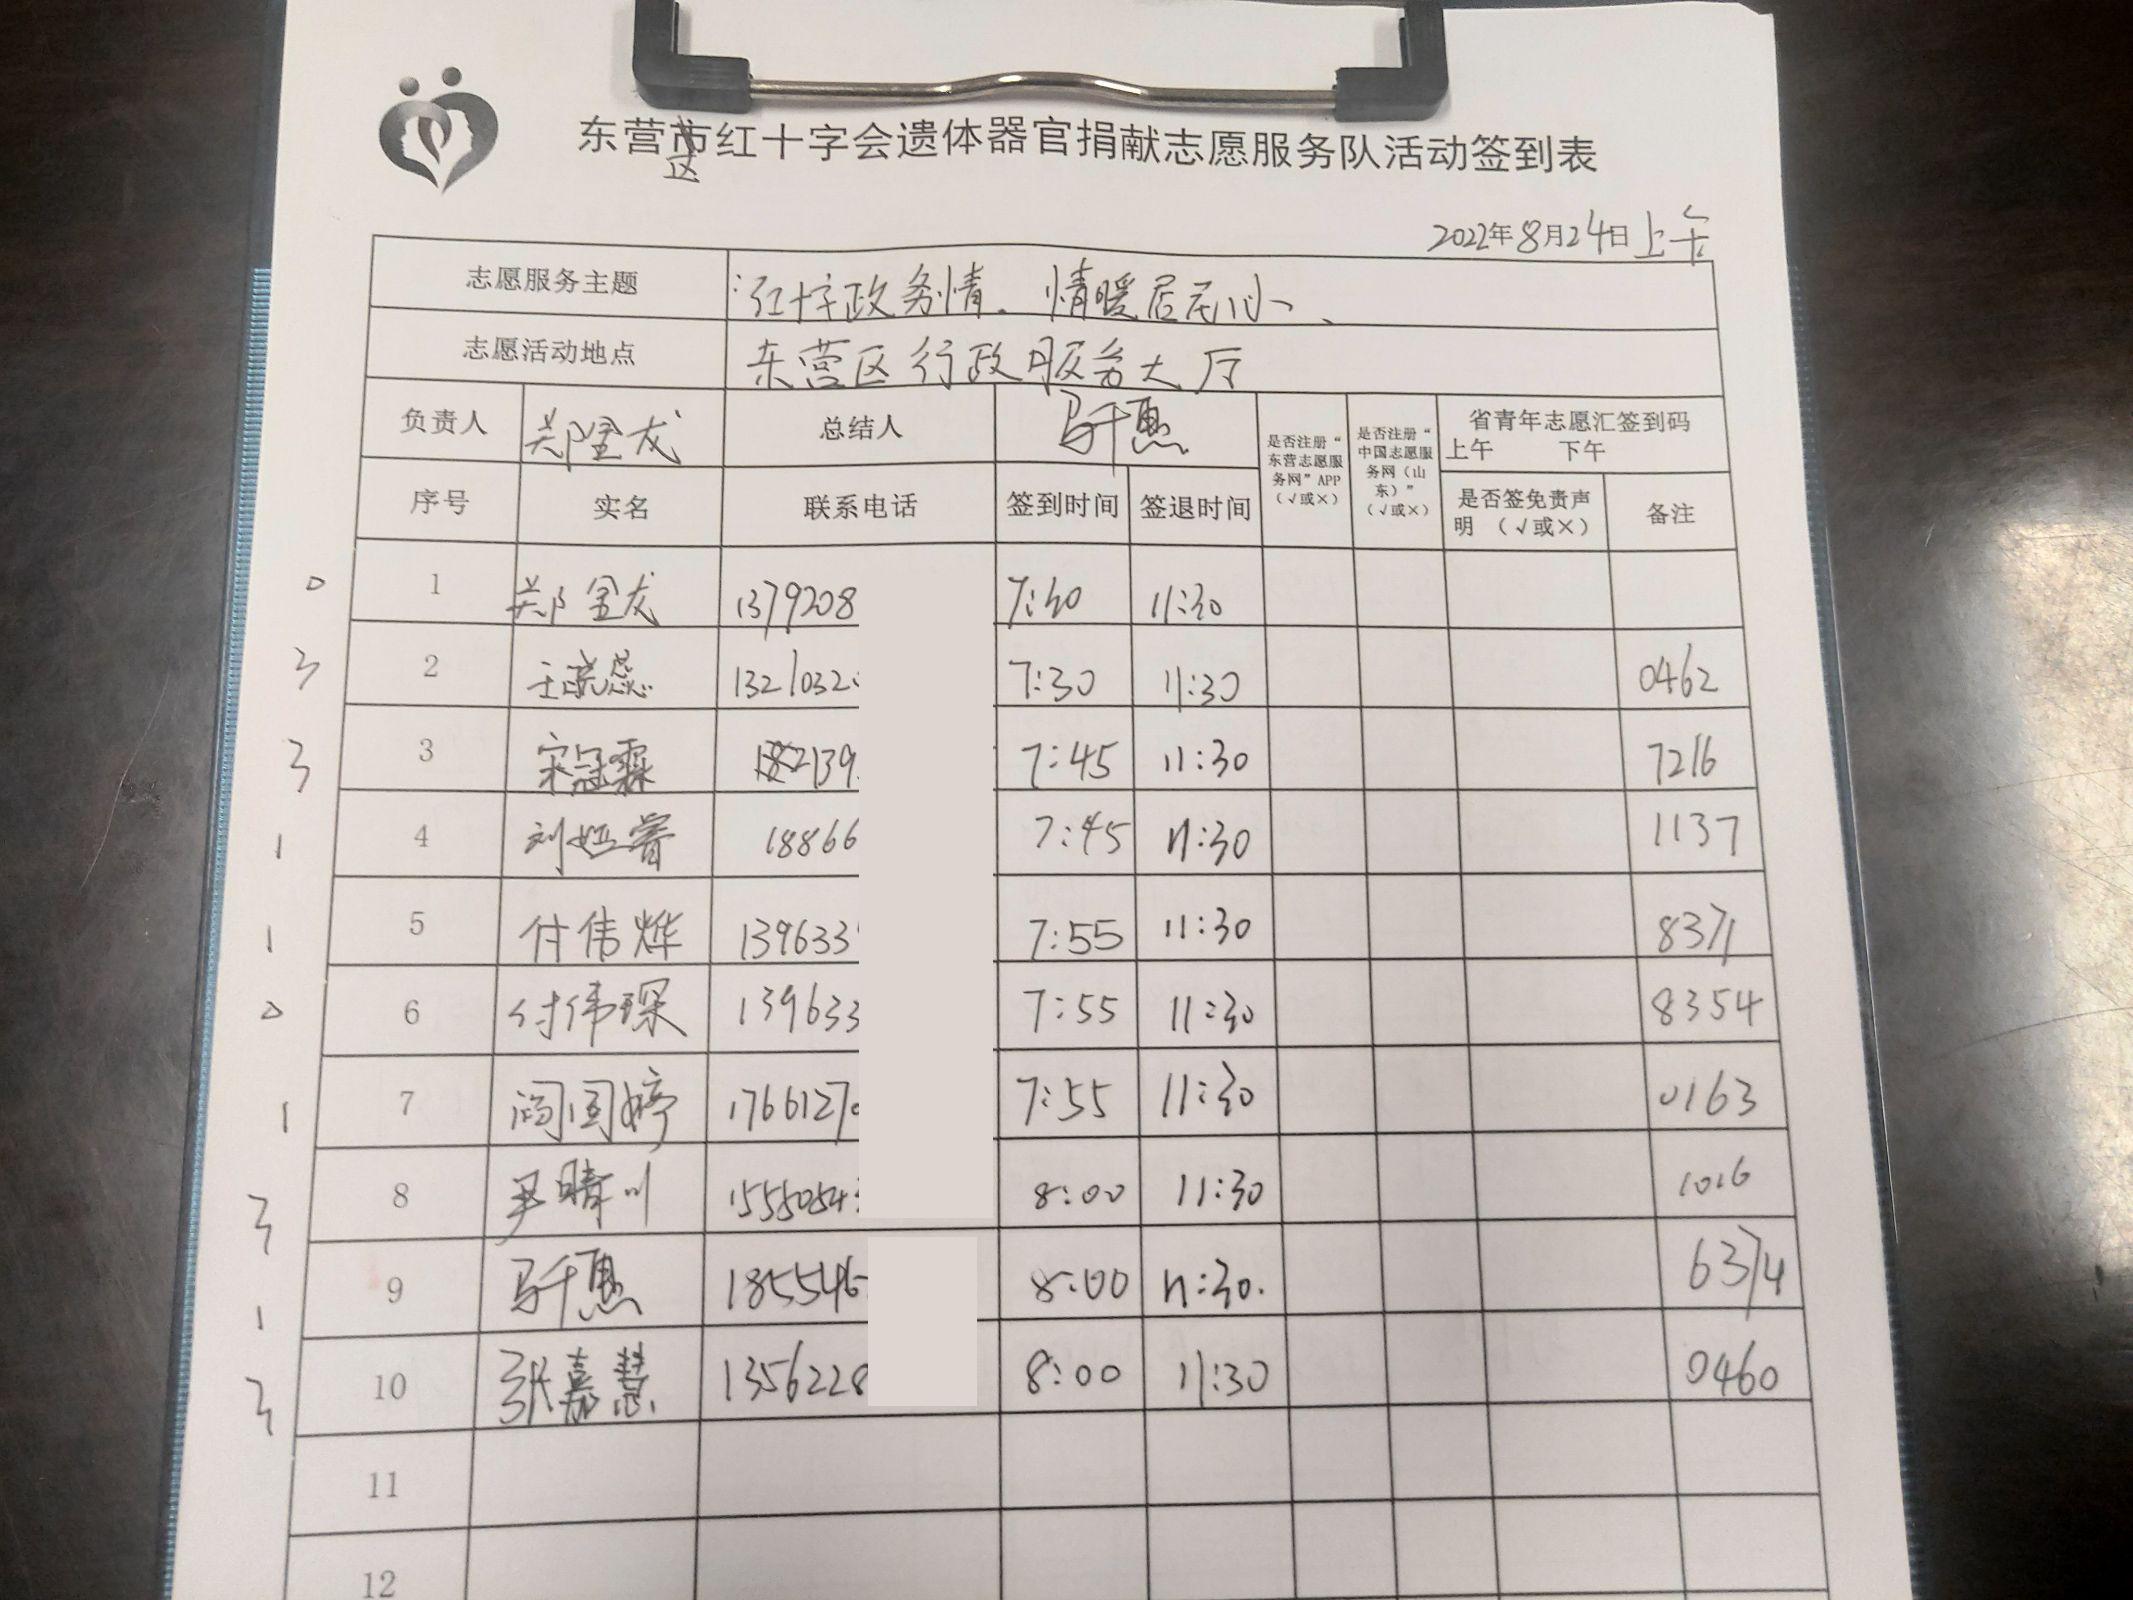 东营区红十字会遗体器官捐献志愿服务队活动签到表
2022年8月24日上午
志愿服务主题 红十字政务情. 情暖居民心、
志愿活动地点 东营区行政服务大厅
负责人 郑金龙 总结人 马千惠 是否注册“东营志愿服务网”APP（√或×） 是否注册“中国志愿服务网（山东）”（√或×） 省青年志愿汇签到码 上午 下午
序号 实名 联系电话 签到时间 签退时间 是否签免责声明（√或×） 备注
0 1 郑金龙 1379208 7:30 11:30
3 2 王晓蕊 1321032 7:30 11:30 0462
3 3 宋冠霖 182139 7:45 11:30 7216
1 4 刘娅睿 18866 7:45 11:30 1137
1 5 付伟烨 139633 7:55 11:30 8371
0 6 付伟琛 139633 7:55 11:30 8354
1 7 婷 1766127 7:55 11:30 0163
3 8 尹晴川 1555054 8:00 11:30 1016
1 9 马千惠 185546 8:00 11:30. 6374
3 10 张嘉慧 1356228 8:00 11:30 0460
11
12